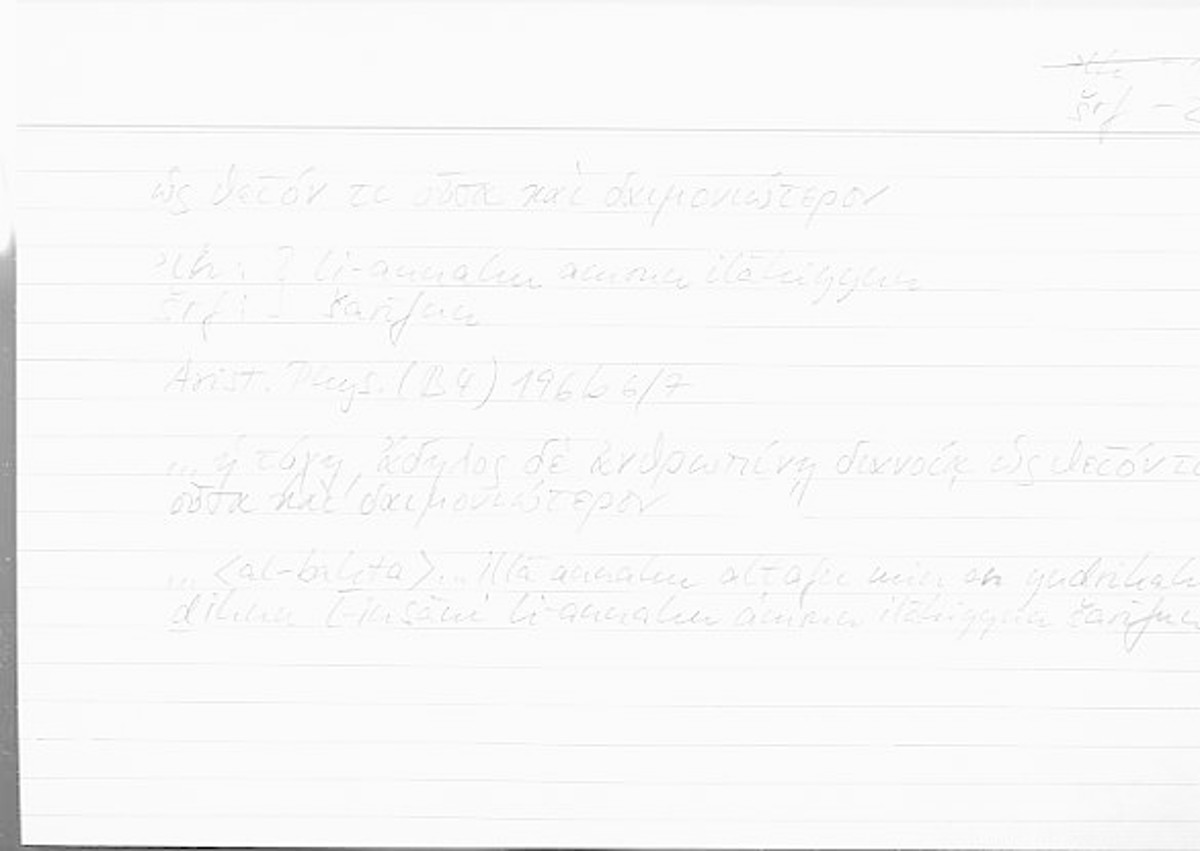 šrf – 2
ὡς θεῖόν τι οὖσα καὶ δαιμονιώτερον
ʾlh : } li-annahu amrun ilāhiyyun
šrf : } šarīfun
Arist. Phys. (B 4) 196b 6/7
... ἡ τύχη, ἄδηλος δὲ ἀνθρωπίνῃ διανοίᾳ ὡς θεῖόν τι
οὖσα καὶ δαιμονιώτερον
... <al-bahta> ... illā annahu alṭafu min an yudrikahu
dihnu l-insāni li-annahu amrun ilāhiyyun šarīfun